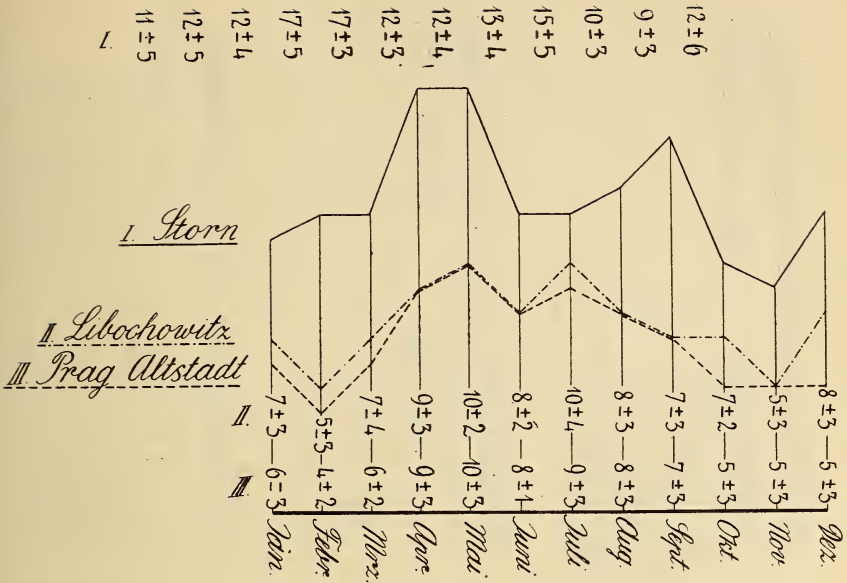 I. 11±5 12±5 12±4 17±5 17±3 12±3 12±4 13±4 15±5 10±3 9±3 12±6
I. Storn
II. Libochowitz
III. Prag Altstadt
II. 7±3 5±3 7±4 9±3 10±2 8±2 10±4 8±3 7±3 7±2 5±3 8±3
III. 6±3 4±2 6±2 9±3 10±3 8±1 9±3 8±3 7±3 5±3 5±3 5±3
Jän. Febr. Mrz. Apr. Mai Juni Juli Aug. Sept. Okt. Nov. Dez.